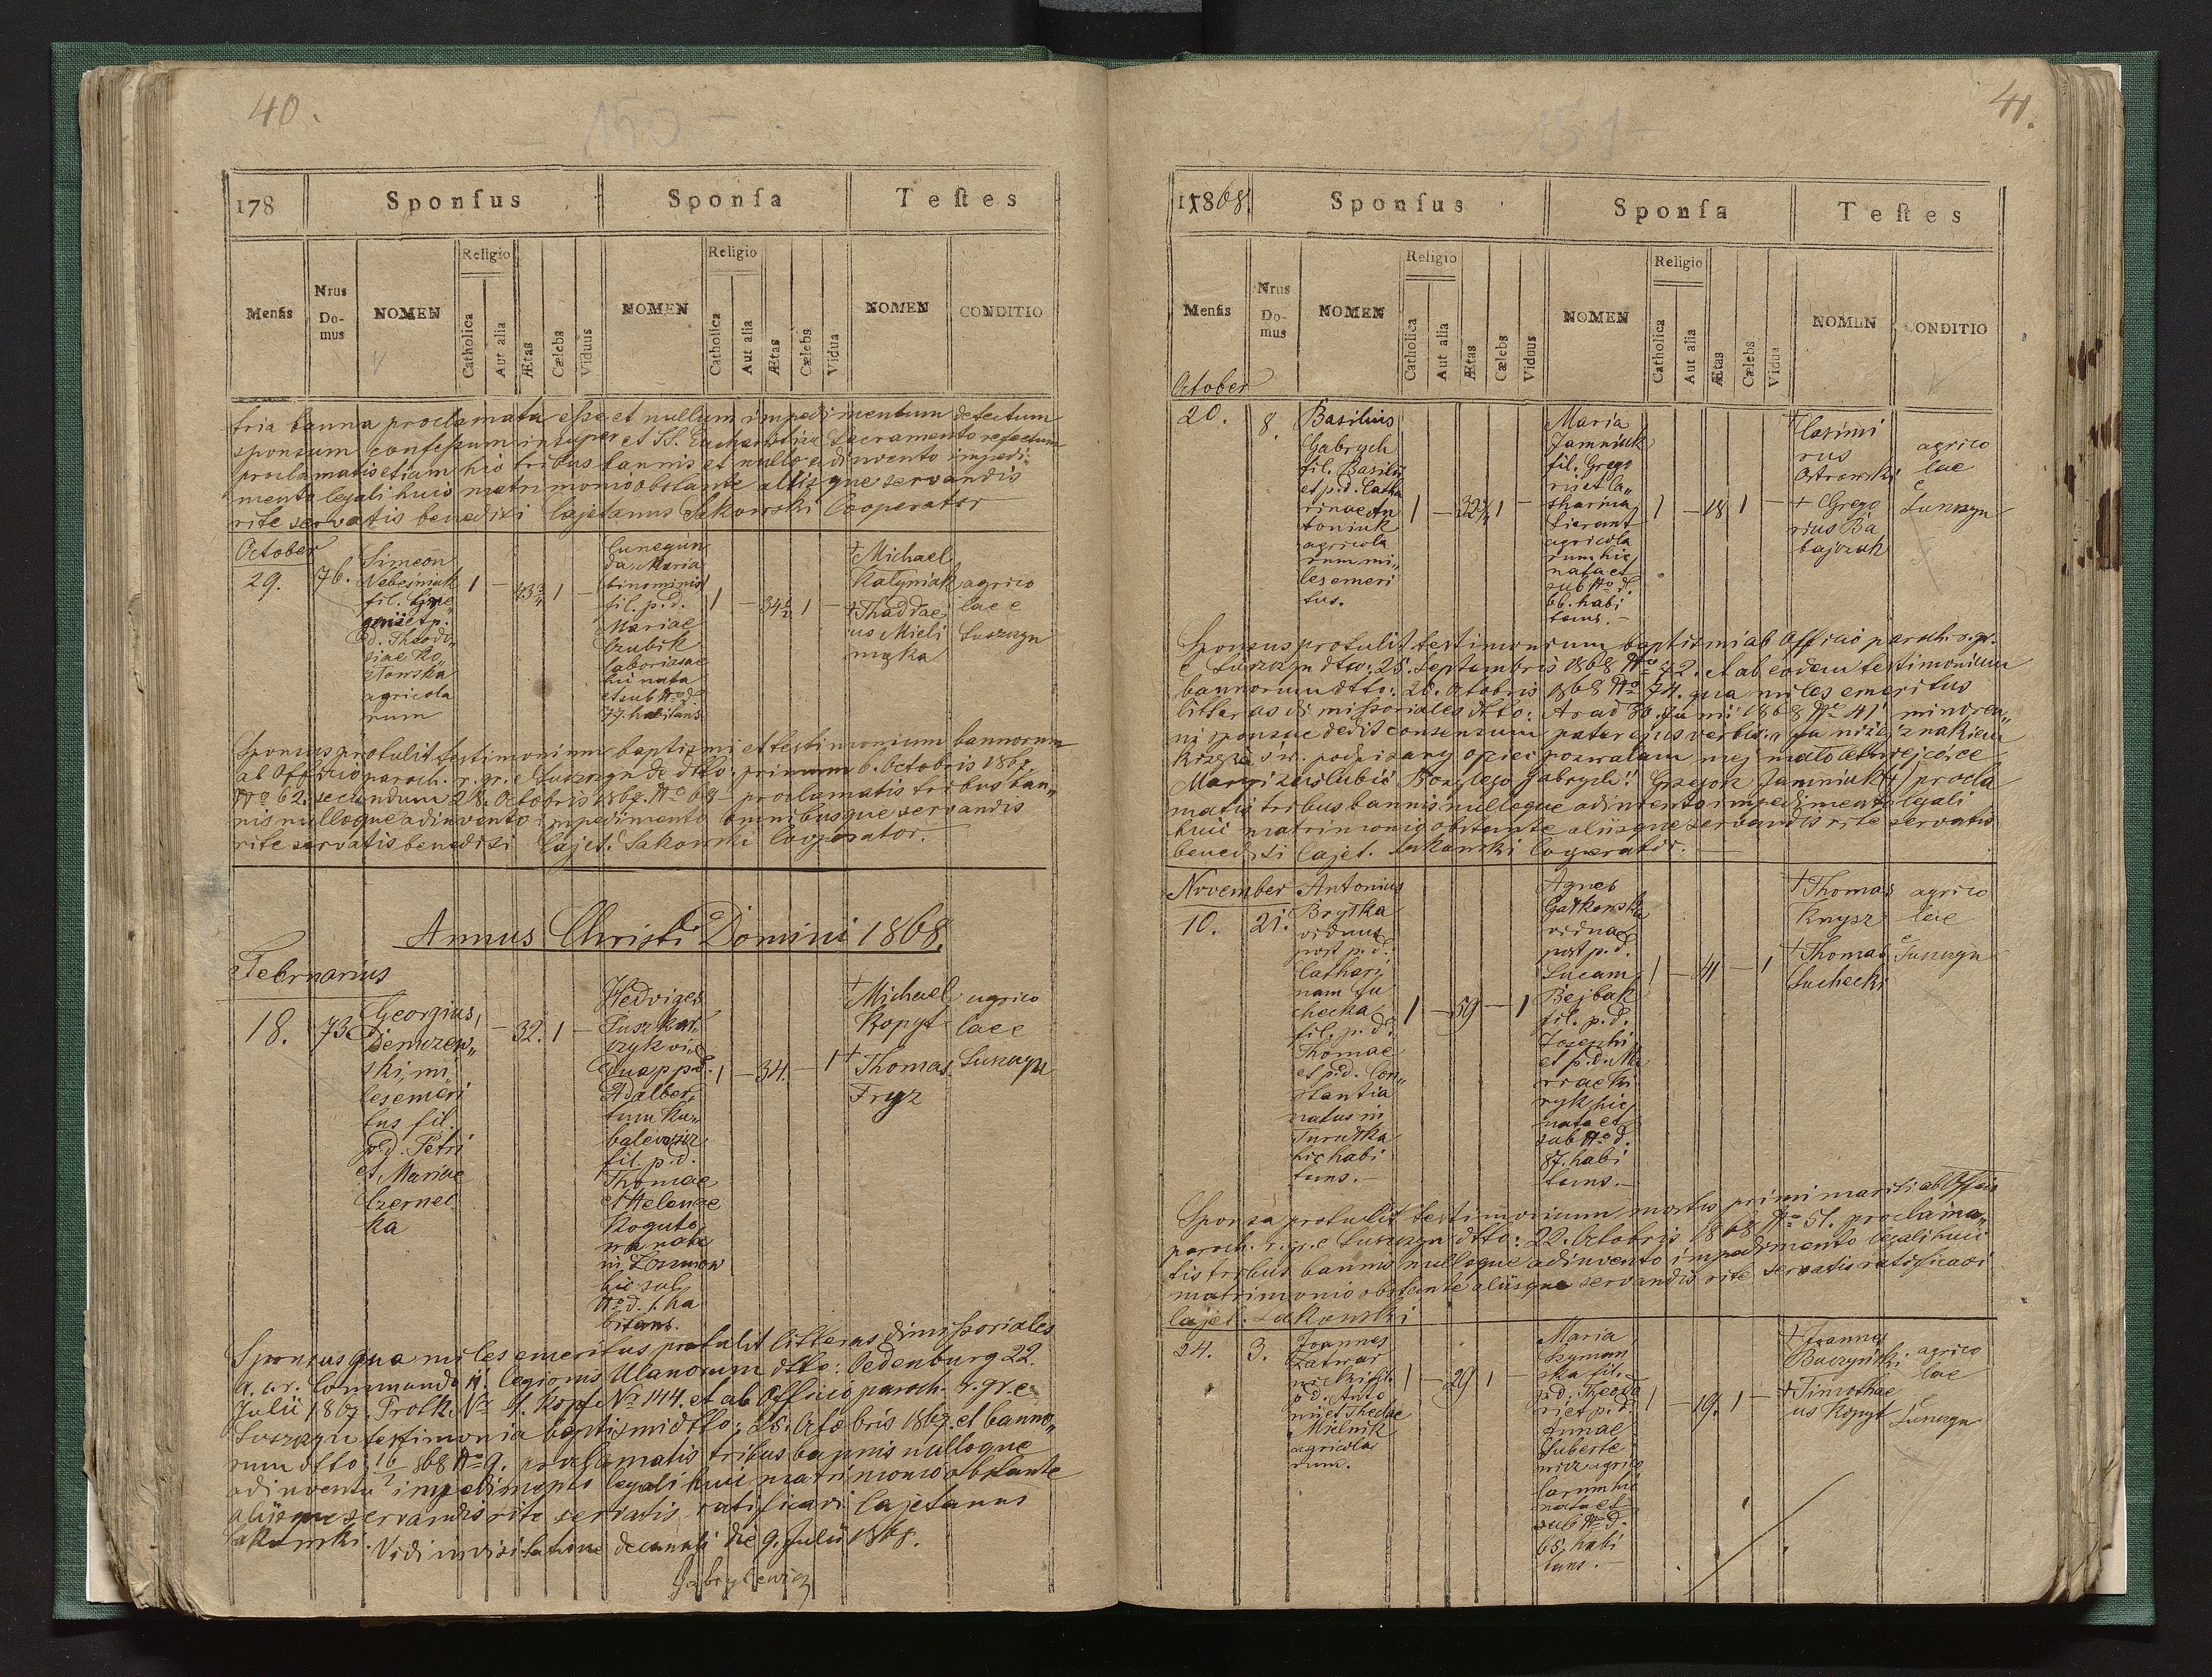 40.
150 -
178
Sponſus
Sponſa
Teſtes
Menſis
Nrus Do-mus
NOMEN
Religio
Catholica
Aut alia
Ætas
Cælebs
Viduus
NOMEN
Religio
Catholica
Aut alia
Ætas
Cælebs
Vidua
NOMEN
CONDITIO
tria banna proclamata esse et nullum impedimentum detectum
sponsum confessum insuper et SS. Eucharistiae Sacramento refectum
proclamatis etiam hic tribus bannis et nullo adinvento impedi-
mento legali huic matrimonio obstante aliisque servandis
rite servatis benedixi Cajetanus Sakowski Cooperator
October
29.
76.
Simeon
Nebesniuk
fil. Sime
onis et p.
d. Theodo
siae Ko
złowska
agricola
rum
1
-
1
-
Cunegun
da, Maria
binominis
fil. p.d.
Mariae
Czubik
laboriosae
hic nata
et sub No d
77. habitans
1
-
34½
1
-
† Michael
Kałyniak
† Thaddae
us Mieli
nczka
agrico
lae e
Łuszczyn
Sponsus protulit testimonium baptismi et testimonium bannorum
ab Officio paroch. r. gr. e Łuszczyn de dtto: primum 6. Octobris 1867.
No 62. secundum 28. Octobris 1867. No 69 proclamatis tribus ban„
nis nulloque adinvento impedimento omnibusque servandis
rite servatis benedixi Cajet. Sakowski Cooperator.
Annus Christi Domini 1868.
Februarius
18.
73
Georgius
Demczew„
ski, mi
les emeri
tus fil.
p.d. Petri
et Mariae
Czernec
ka
-
32.
1
-
Hedviges
Puszkar„
czyk vi
dua p p.d.
Adalber„
tum Ku„
balewicz
fil. p.d.
Thomae
et Helenae
Koguto
wa nata
in
hic sub
No d. 1. ha
bitans.
1
-
34.
-
1
† Michael
Kopyt
† Thomas
Fryz
agrico
lae e
Łuszczyn
Sponsus qua miles emeritus protulit litteras dimissoriales
a. c. r. Commando 11 legionis Ulanorum dtto: Oedenburg 22.
Julii 1867. Protk. Nr 4. Kopf Nr 144. et ab Officio paroch. r. gr. e
Łuszczyn testimonia baptismi dtto: 25. Octobris 1867. et banno„
rum dtto 16/2 868 No 9. proclamatis tribus bannis nulloque
adinvento impedimento legali huic matrimonio obstante
aliisque servandis rite servatis ratificavi Cajetanus
Sakowski. Vidi in visitatione decanali die 9. Julii 1868.
Gabrylewicz
41.
- 151 -
1868.
Sponſus
Sponſa
Teſtes
Menſis
Nrus Do-mus
NOMEN
Religio
Catholica
Aut alia
Ætas
Cælebs
Viduus
NOMEN
Religio
Catholica
Aut alia
Ætas
Cælebs
Vidua
NOMEN
CONDITIO
October
20.
8.
Basilius
Gabrych
fil. Basilii
et p.d. Catha
rinae An
toniuk
agricola
rum mi„
les emeri
tus.
1
-
1
-
Maria
Jamniuk
fil. Grego
rii et Ca„
tharinae
Sierant
agricola
rum hic
nata et
sub No d.
66. habi
tans.-
1
-
18
1
-
† Casimi
rus
Ostrowski
† Grego
rius Ba
bajczuk
agrico
lae
e
Łuszczyn
Sponsus protulit testimonium baptismi ab Officio paroch. r. gr.
e Łuszczyn dtto: 25. Septembris 1868 No 72. et ab eodem testimonium
bannorum dtto: 20. Octobris 1868 No 74. qua miles emeritus
litteras dimissoriales dtto: Arad 30. Junii 1868 No 41. minoren„
ni sponsae dedit consensum pater ejus verbis: „Ja niżej znakiem
krzyża św. podpisany ojciec pozwalam mej małoletniej córce
Maryi zaślubić Bazylego Gabrych" Grzegorz Jamniuk (†) procla
matis tribus bannis nulloque adinvento impedimento legali
huic matrimonio obstante aliisque servandis rite servatis
benedixi Cajet. Sakowski Cooperator.
November
10.
21.
Antonius
Brytka
viduus
post p.d.
Cathari
nam Su
checka
fil. p.d.
Thomae
et p.d. Con„
stantia
natus in
Turutka
hic habi
tans.-
1
-
59
-
1
Agnes
Gatkowska
vidua
post p.d.
Lucam
Bejbak
fil. p.d.
Josephi
et p.d. Ma
ryk hic
nata et
sub No d.
87. habi
tans.-
1
-
41
-
1
† Thomas
Knysz
† Thomas
Suchecki
agrico
lae
e
Łuszczyn
Sponsa protulit testimonium mortis primi mariti ab Officio
paroch. r. gr. e Łuszczyn dtto: 22. Octobris 1868 No 51. proclama„
tis tribus bannis nulloque adinvento impedimento legali huic
matrimonio obstante aliisque servandis rite servatis ratificavi
Cajet. Sakowski
24.
3.
Joannes
Zatwar
nicki fil.
p d. Anto
nii et Theclae
Mielnik
agricola
rum.
1
-
29
1
-
Maria
Szyman
ska fil.
p.d. Theodo
ri et p.d.
Annae
Huberte
wicz agrico
larum hic
nata et
sub No d.
65. habi
tans.-
1
-
19.
1
-
† Joannes
Buczyński
† Timothae
us Kopyt
agrico
lae
e
Łuszczyn